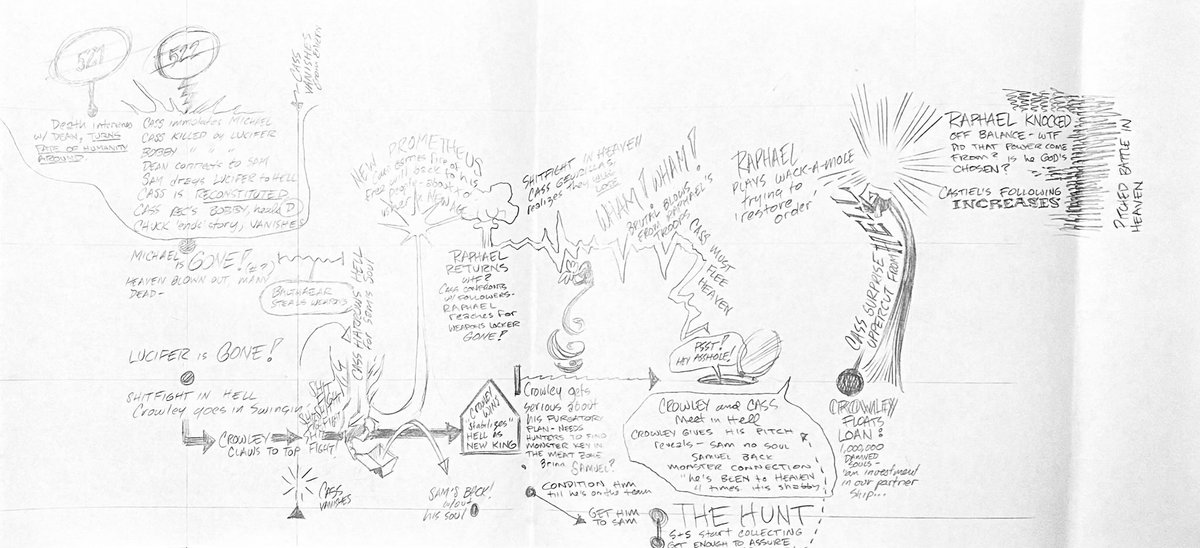 521
522
CASS
VANISHES
Death intervenes
w/ DEAN, TURNS
FATE OF HUMANITY
AROUND
CASS immolates MICHAEL
CASS KILLED by LUCIFER
BOBBY " " "
DEAN connects to SAM
SAM drags LUCIFER to HELL
CASS is RECONSTITUTED
CASS REC'S BOBBY, heals D
CHUCK "ends" story, VANISHES
MICHAEL is GONE!
HEAVEN BLOWN OUT, MANY
DEAD-
BALTHAZAR
STEALS WEAPONS
LUCIFER is GONE!
SHITFIGHT IN HELL
Crowley goes in Swinging
CROWLEY
CLAWS TO TOP
CASS HARROWS HELL
for SAM'S SOUL
CASS
VANISHES
NEW PROMETHEUS
SAM'S BACK!
w/out
his soul
CROWLEY
WINS
"stabilises"
HELL AS
NEW KING
RAPHAEL
RETURNS
WTF?
CASS CONFRONTS
w/ FOLLOWERS-
RAPHAEL
reaches for
WEAPONS LOCKER
GONE!
SHITFIGHT IN HEAVEN
CASS &
realizes they will
LOSE
WHAM! WHAM!
BRUTAL BLOWS
FROM RAPHAEL'S
TROOPS
CASS MUST
FLEE
HEAVEN
RAPHAEL
PLAYS WACK-A-MOLE
trying to
restore
order
PSST!
HEY ASSHOLE!
Crowley gets
serious about
his PURGATORY
PLAN - NEEDS
HUNTERS TO FIND
MONSTER KEY IN
THE MEAT ZONE
Bring
SAMUEL?
CONDITION HIM
till he's on the team
GET HIM
TO SAM
CROWLEY and CASS
Meet in Hell
CROWLEY GIVES HIS PITCH
Reveals - SAM no SOUL
SAMUEL BACK
MONSTER CONNECTION
"he's BEEN to HEAVEN
11 times. it's shabby
THE HUNT
S+S start collecting
GET ENOUGH TO ASSURE
CASS SURPRISE
UPPERCUT FROM HELL
CROWLEY
FLOATS
LOAN:
1,000,000
DAMNED
SOULS -
"an investment
in our partner
ship...
RAPHAEL KNOCKED
OFF BALANCE - WTF
DID THAT POWER COME
FROM? is he GOD'S
CHOSEN?
CASTIEL'S FOLLOWING
INCREASES
PITCHED BATTLE IN
HEAVEN